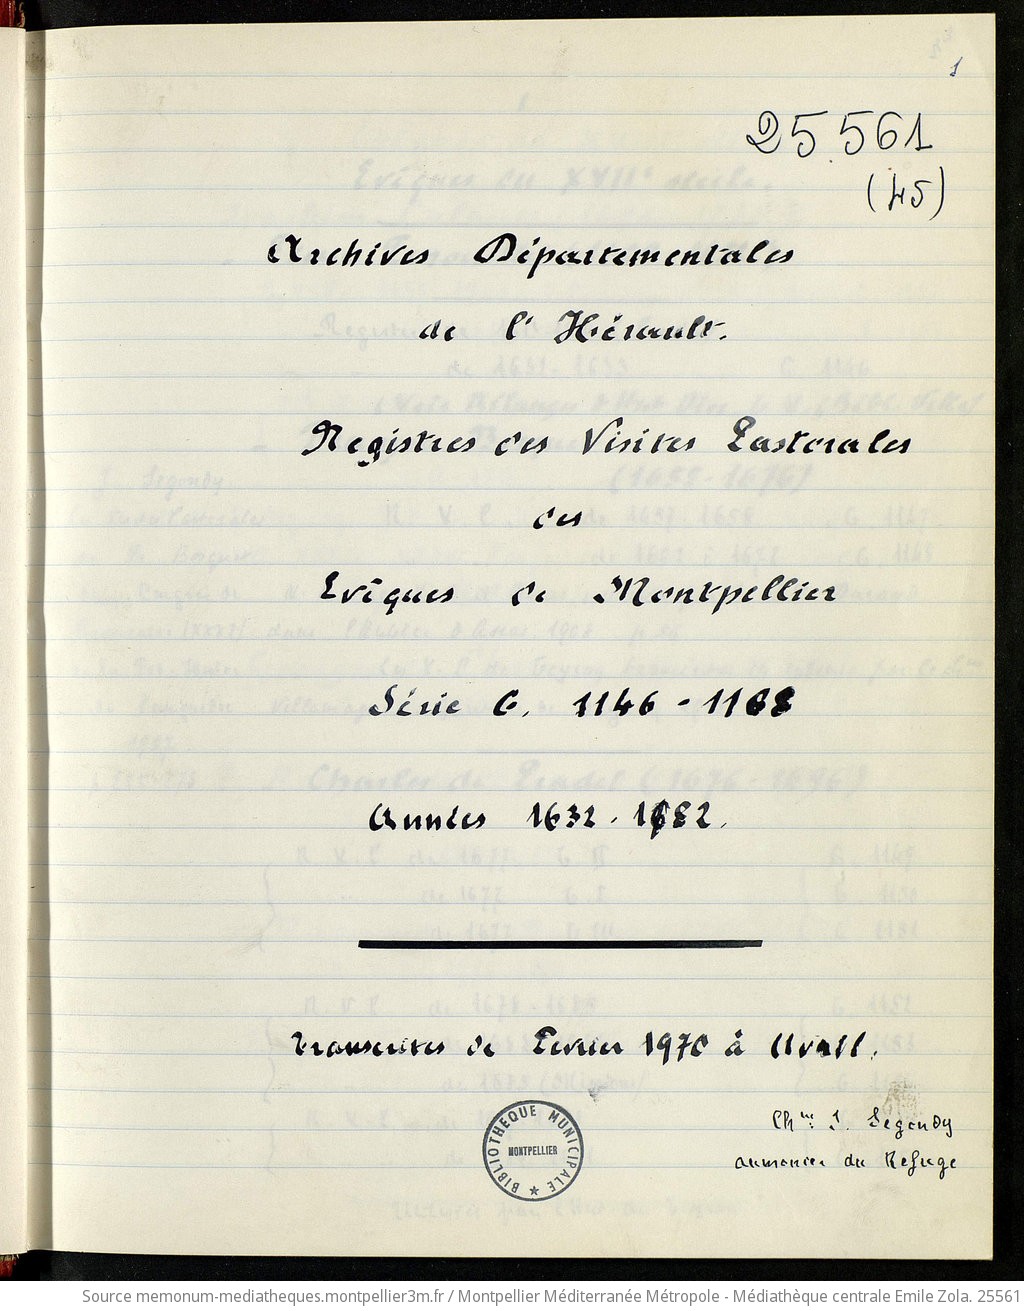 1
25561
(45)
Archives Départementales
de l'Hérault.
Registres des Visites Pastorales
des
Evêques de Montpellier
Série G. 1146 - 1168
Années 1632 - 1682.
Transcrites de Février 1970 à Avril.
Chne J. Segondy
aumonier du Refuge
BIBLIOTHEQUE MUNICIPALE
MONTPELLIER
Source memonum-mediatheques.montpellier3m.fr / Montpellier Méditerranée Métropole - Médiathèque centrale Emile Zola. 25561